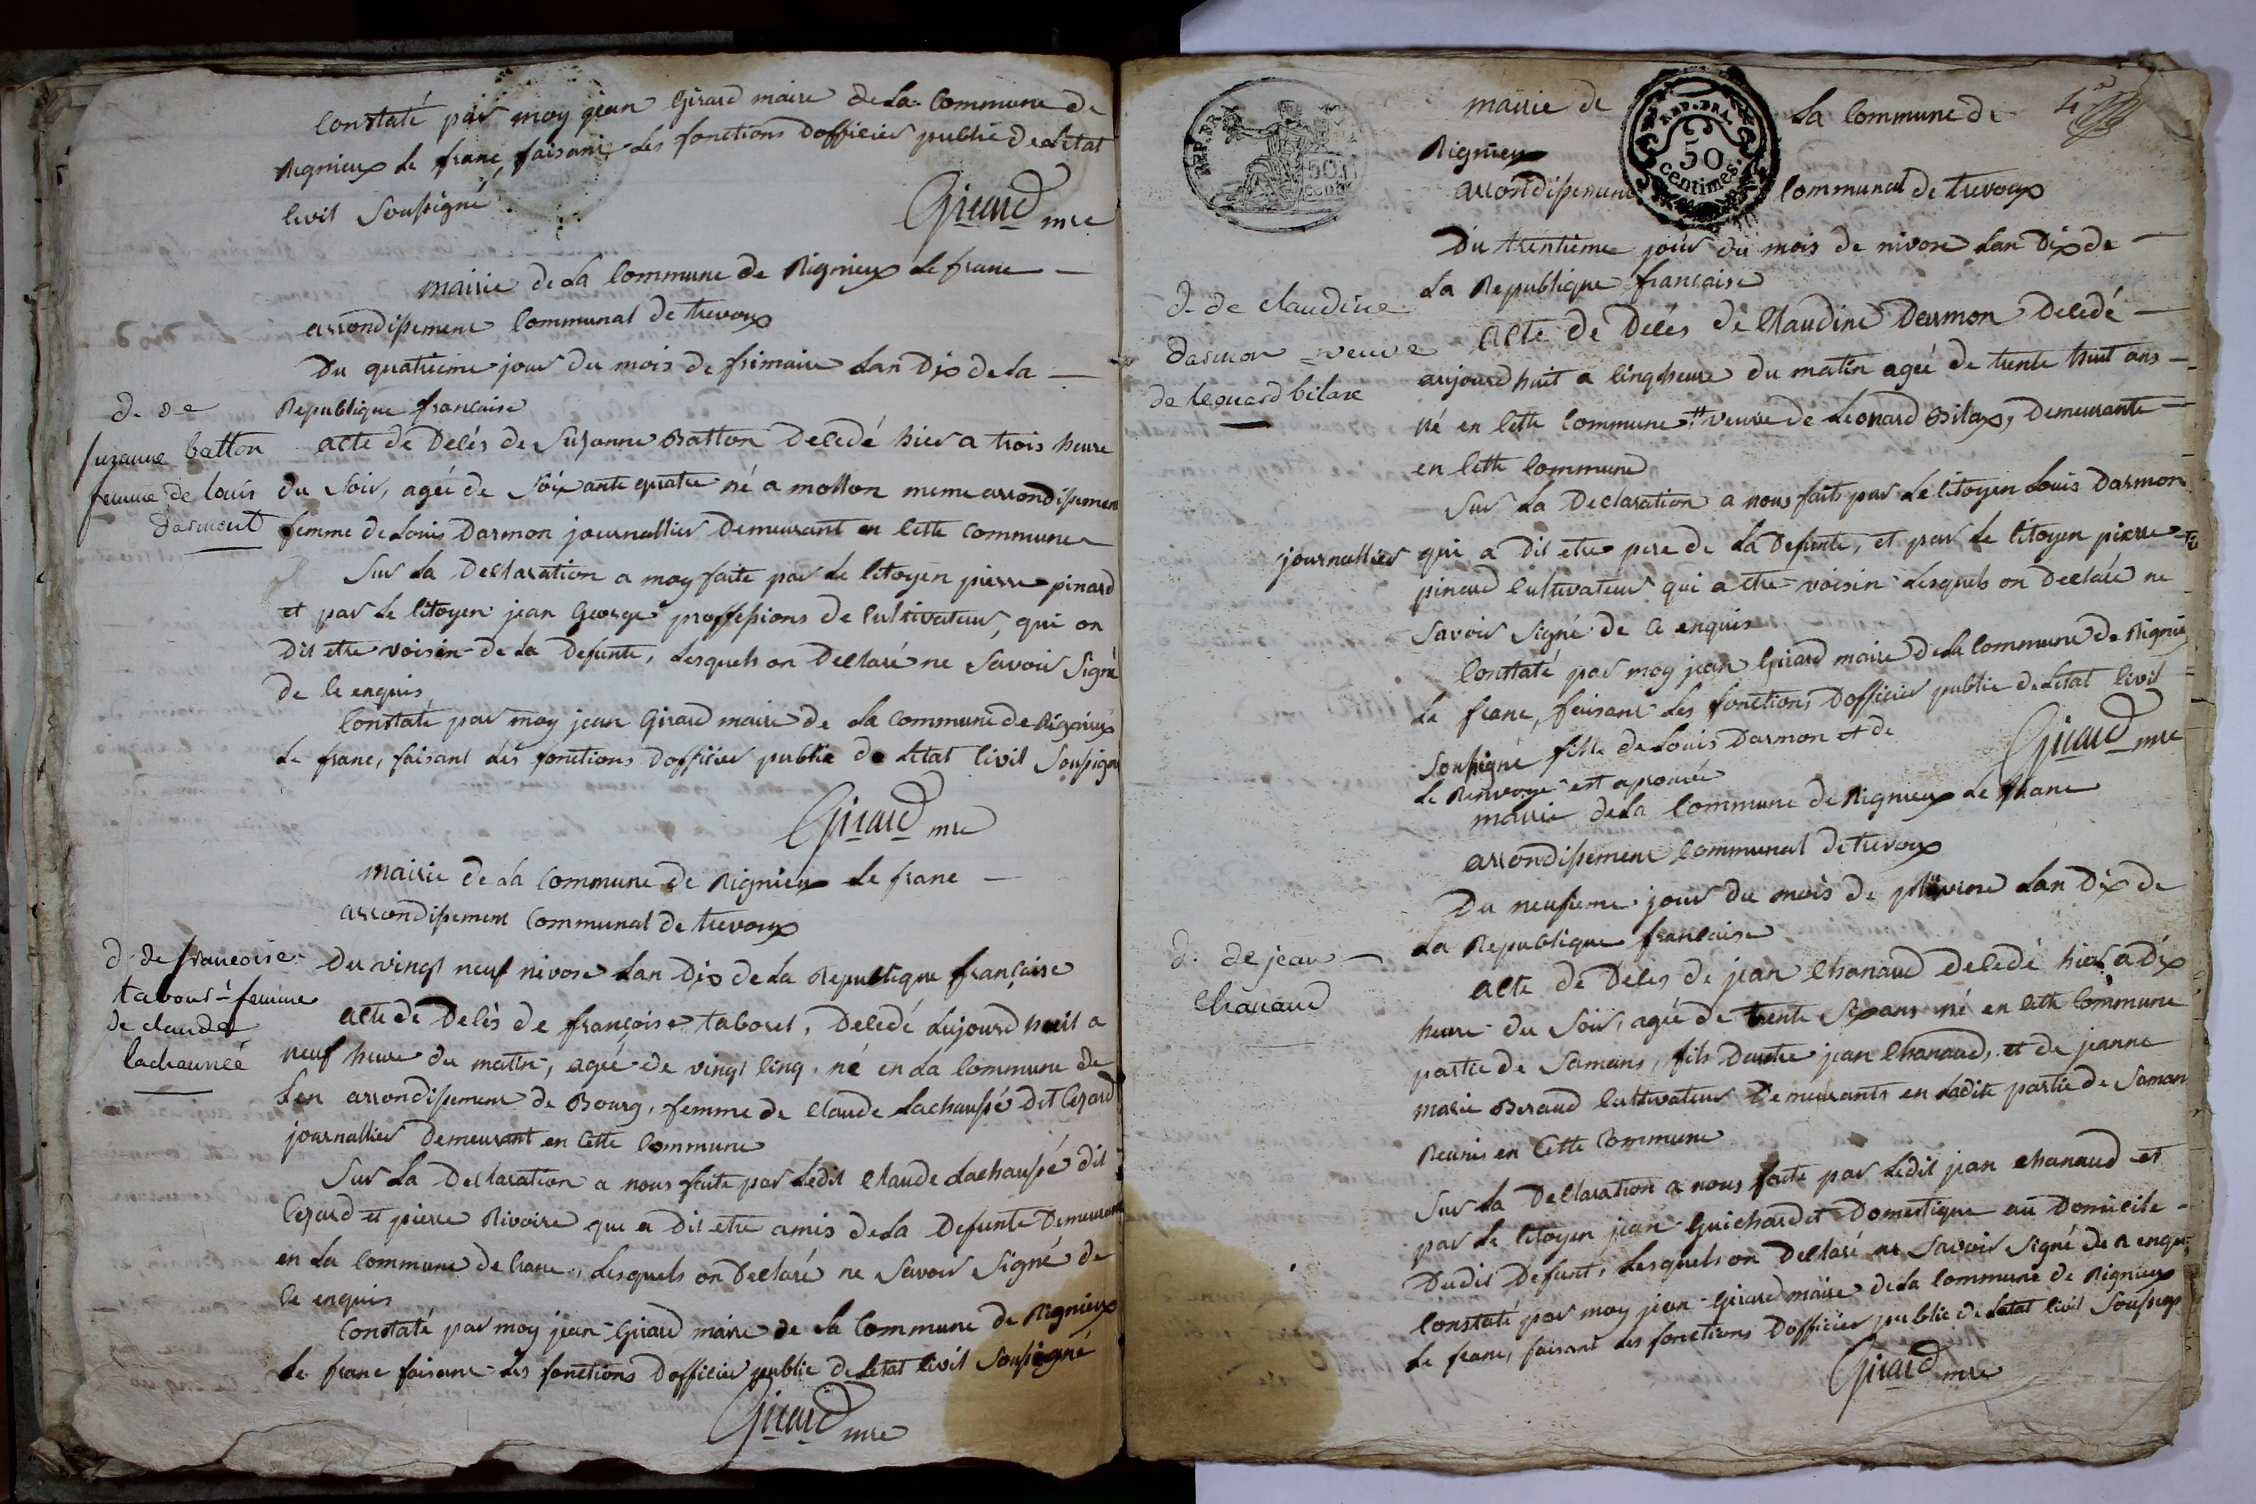 Constaté par moy jean Girard maire de la Commune de
Rignieux le franc faisant les fonctions Dofficier public de Letat
Civil Soussigné
Girard mre
mairie de La Commune de Rignieux Le franc
arrondissement Communal de trevoux
Du quatrieme jour du mois de frimaire Lan Dix de La
Republique francaise
D. de
suzanne batton
femme de louis
Darmont
acte de Décés de Suzanne Batton Decedé hier a trois heure
du Soir, ageé de Soixante quatre né a mollon meme arrondissement
femme de Louis Darmon journallier Demeurant en Cette Commune
Sur La Declaration a moy faite par Le Citoyen pierre pinard
et par Le Citoyen jean George proffessions de Cultivateur, qui on
Dit etre voisin de La Defunte, Lesquels on Declaré ne Savoir Signé
de Ce enquis
Constaté par moy jean Girard maire de La Commune de Rignieux
Le franc, faisant Les fonctions Dofficier public de Letat Civil Soussigné
Girard mre
Mairie de La Commune de Rignieux Le franc
arrondissement Communal de trevoux
D. de francoise
tavouret femme
de claude
lachaussée
Du vingt neuf nivose Lan Dix de La Republique française
acte de Décès de françoise taboret, Decedé aujourdhuit a
neuf heure du matin, ageé de vingt Cinq, né en La Commune de
Len arrondissement de Bourg, femme de Claude Lachaussé Dit Cezard
journallier Demeurant en Cette Commune
Sur La Declaration a nous faite par Ledit Claude Lachaussé dit
Cezard et pierre Rivoire qui a Dit etre amis de La Defunte Demeurant
en La Commune de Crans, Lesquels on Declaré ne Savoir Signé de
Ce enquis
Constaté par moy jean Girard maire de La Commune de Rignieux
Le franc faisant Les fonctions Dofficier public de Letat Civil Soussigné
Girard mre
REP. FRA.
50
cent.
REP. FRA.
50
centimes
4
mairie de La Commune de
Rignieux
arrondissement Communal de trevoux
Du trentieme jour du mois de nivose Lan Dix de
La Republique francaise
D. de claudine
Darmon veuve
de leonard bilax
acte de Décés de Claudine Darmon Decedé
aujourdhuit a Cinq heure du matin ageé de trente huit ans
né en Cette Commune # veuve de Léonard Bilax, Demeurante
en Cette Commune
Sur La Declaration a nous faite par Le Citoyen Louis Darmon
journallier qui a Dit etre pere de La Defunte, et par Le Citoyen pierre
pinard Cultivateur qui a etre voisin Lesquels on Declaré ne
Savoir Signé de Ce enquis
Constaté par moy jean Girard maire de La Commune de Rignieux
Le franc, faisant Les fonctions Dofficier public de Letat Civil
Soussigné fille de Louis Darmon et de
Girard mre
Le Renvoye est aprouvé
mairie de La Commune de Rignieux Le franc
arrondissement Communal de trevoux
Du neufieme jour du mois de pluviose Lan Dix de
La Republique francaise
D. de jean
chanaud
acte de Décés de jean Chanaud Decedé hier a Dix
heure du Soir, ageé de trente Six ans né en Cette Commune
partie de Samans, fils Dautre jean Chanaud, et de jeanne
marie Beraud Cultivateur Demeurants en Ladite partie de Samans
Reunis en Cette Commune
Sur La Declaration a nous faite par Ledit jean Chanaud et
par Le Citoyen jean Guichardet Domestique au Domicile
Dudit Defunt, Lesquels on Declaré ne Savoir Signé de Ce enquis
Constaté par moy jean Girard maire de La Commune de Rignieux
Le franc, faisant Les fonctions Dofficier public de Letat Civil Soussigné
Girard mre